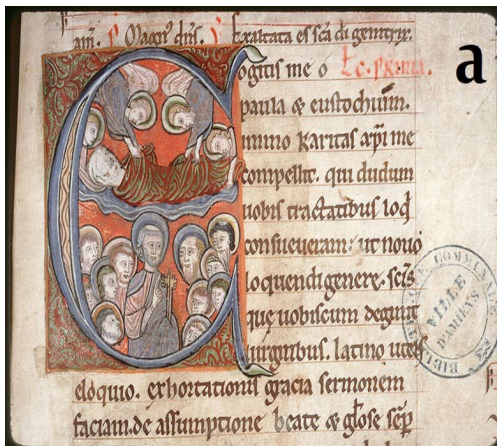 am. Magn' dns. Exaltata es sca di genitrix.
ogitis me o Lc. prima.
paula & eustochium.
immo karitas xpi me
compellit. qui dudum
uobis tractatibus loq
consueueram: ut nouo
loquendi genere. scis
que uobiscum degunt
uirginibus. latino utes
eloquio. exhortationis gracia sermonem
faciam. de assumptione beate & glose sep
a
BIBLIOTHEQUE COMMUNALE
VILLE
D'AMIENS